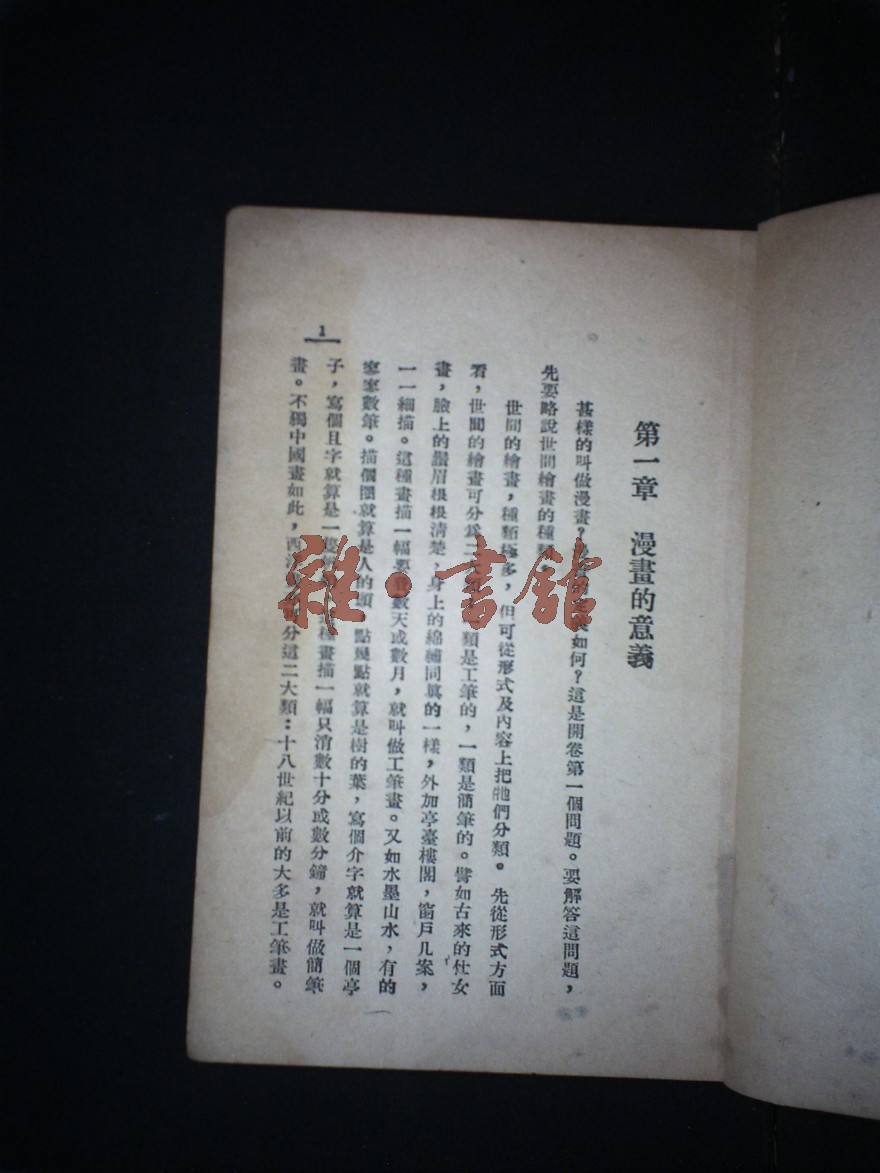 第一章 漫畫的意義
甚樣的叫做漫畫?如何?這是開卷第一個問題。要解答這問題,
先要略說世間繪畫的種類
世間的繪畫,種類極多,但可從形式及內容上把牠們分類。先從形式方面
看,世間的繪畫可分爲一類是工筆的,一類是簡筆的。譬如古來的仕女
畫,臉上的鬚眉根根清楚,身上的綿繡同眞的一樣,外加亭臺樓閣,窗戶几案,
一一細描。這種畫描一幅要費數天或數月,就叫做工筆畫。又如水墨山水,有的
寥寥數筆。描個圈就算是人的頭,點幾點就算是樹的葉,寫個介字就算是一個亭
子,寫個且字就算是一隻種畫描一幅只消數十分或數分鐘,就叫做簡筆
畫。不獨中國畫如此,西分這二大類:十八世紀以前的大多是工筆畫。
1
雜·書館